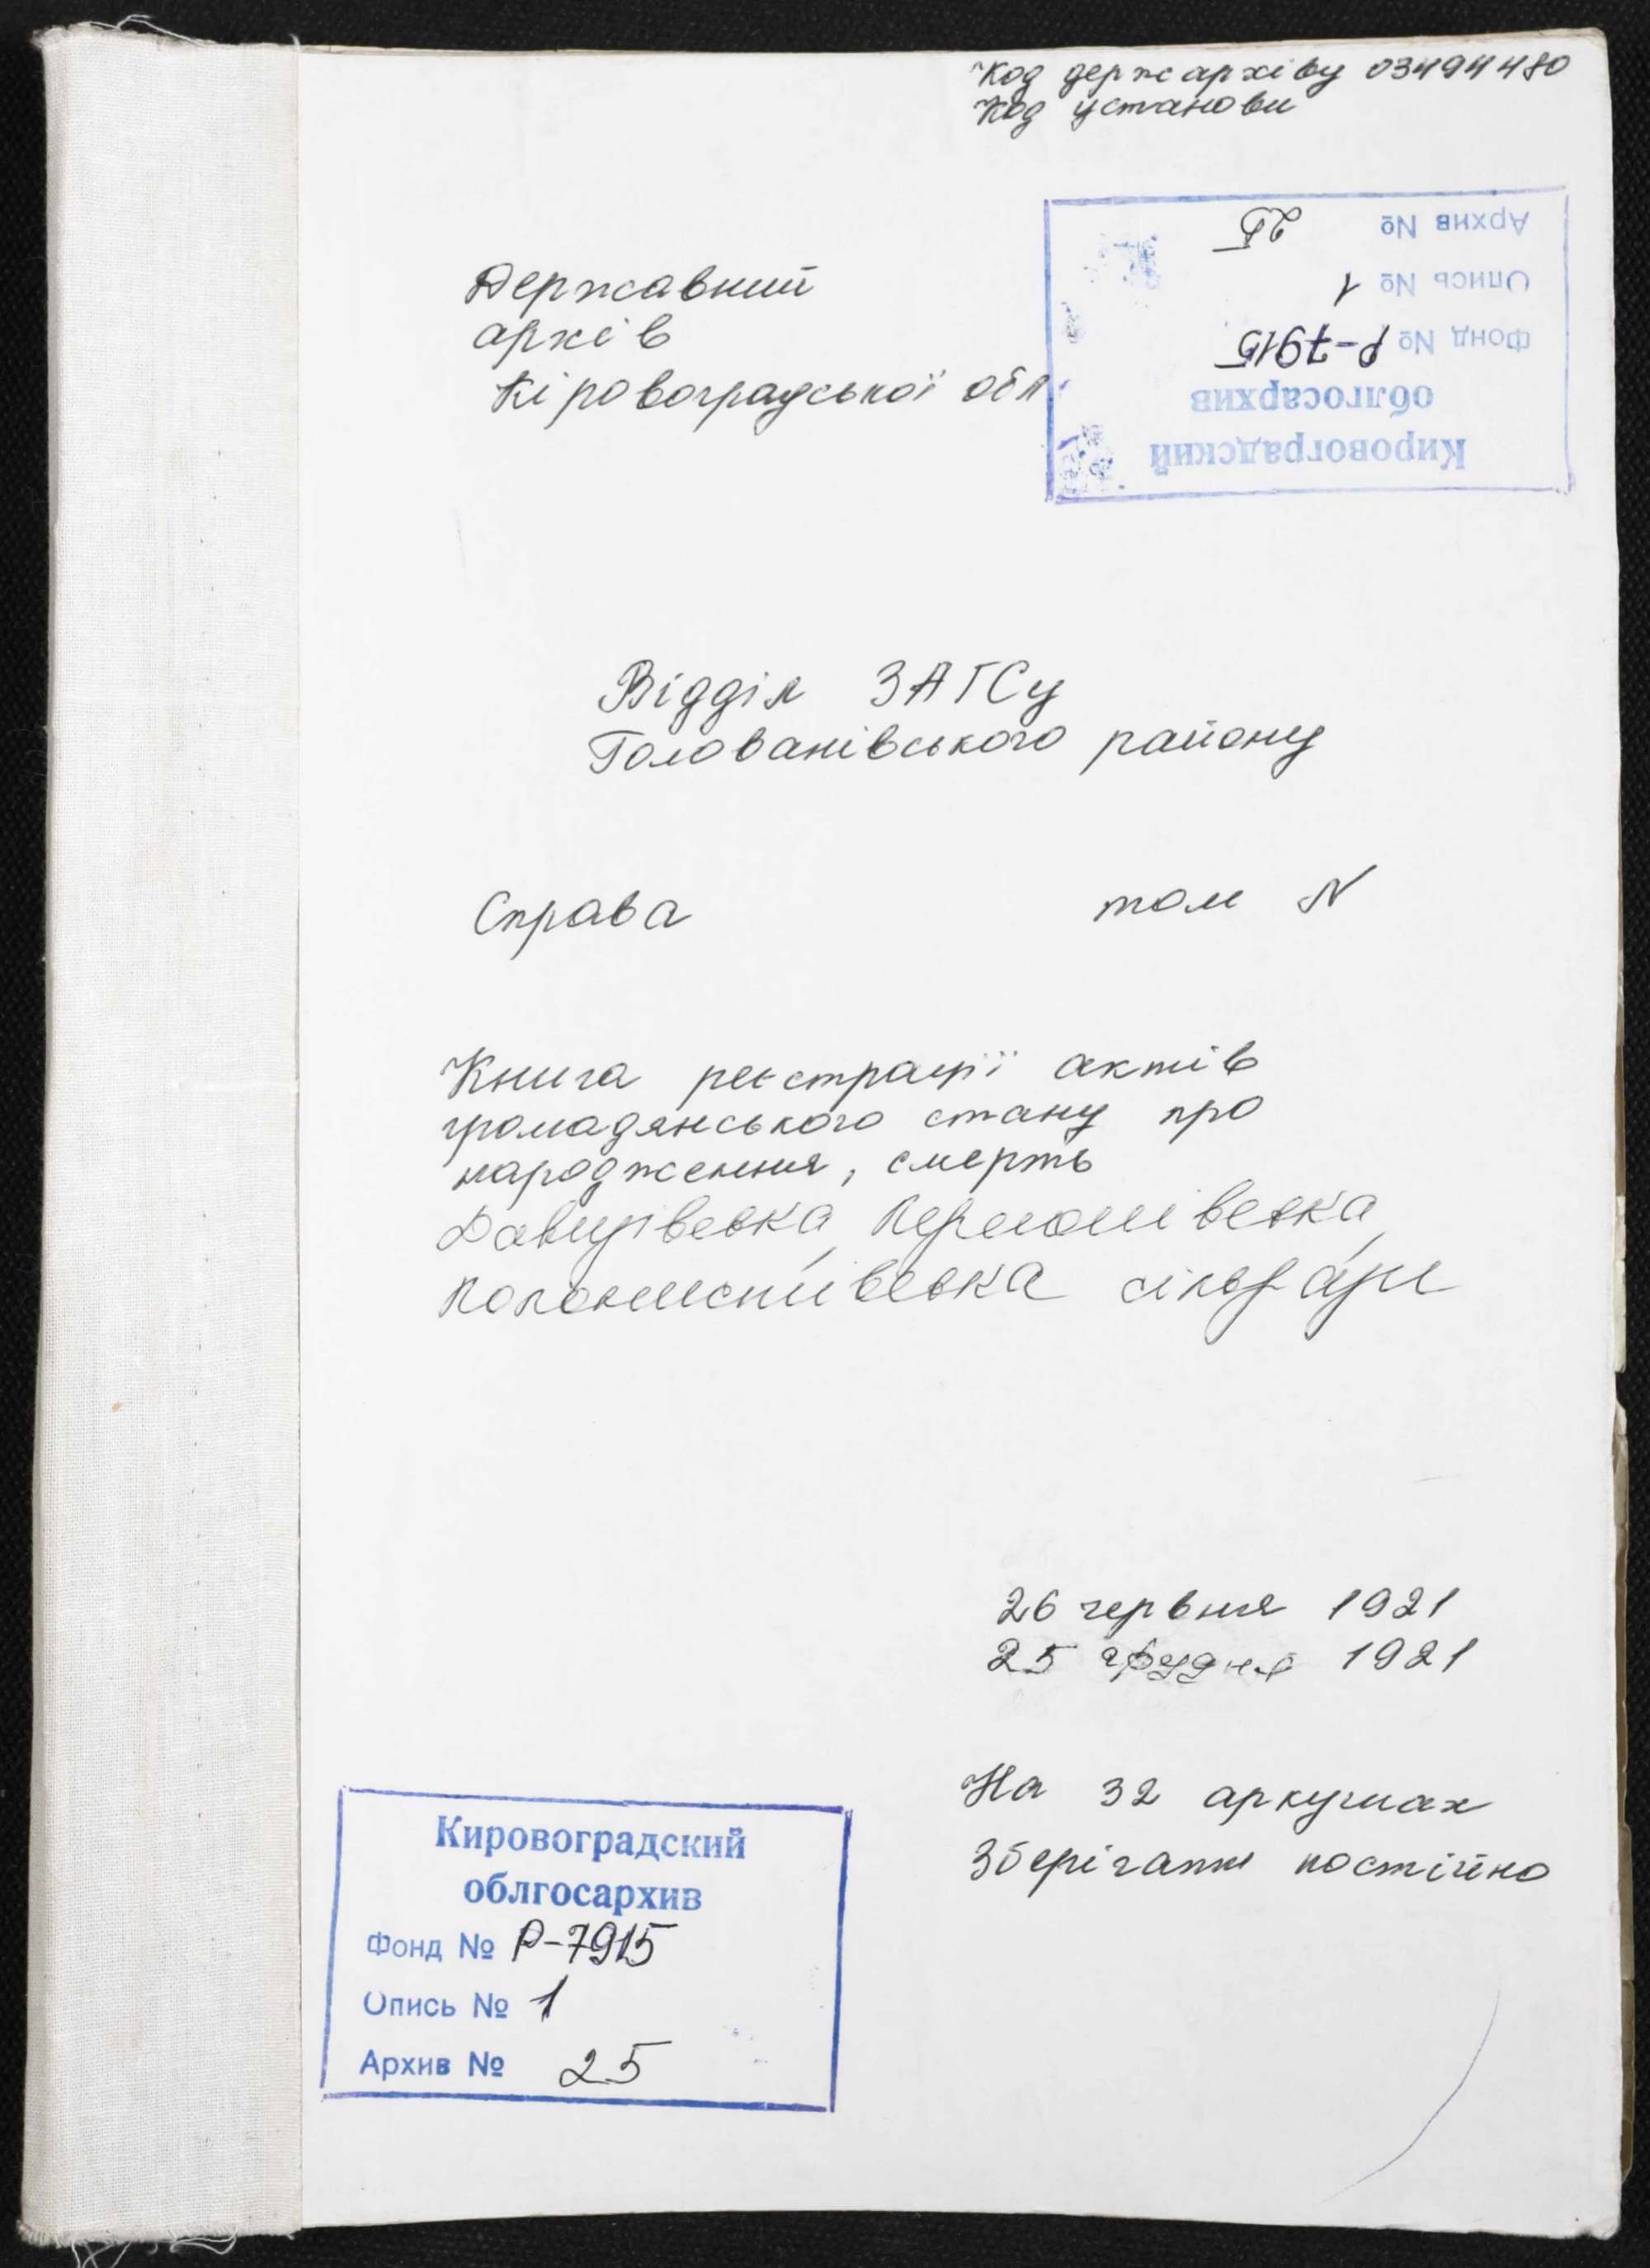 Код держархіву 03494480
Код установи
Архив № 25
Опись № 1
Фонд № Р-7915
облгосархив
Кировоградский
Державний
архів
Кіровоградської обл
Відділ ЗАГСу
Голованівського району
Справа том N
Книга реєстрації актів
громадянського стану про
народження, смерть
сільради
26 червня 1921
25 грудня 1921
На 32 аркушах
Зберігати постійно
Кировоградский
облгосархив
Фонд № Р-7915
Опись № 1
Архив № 25